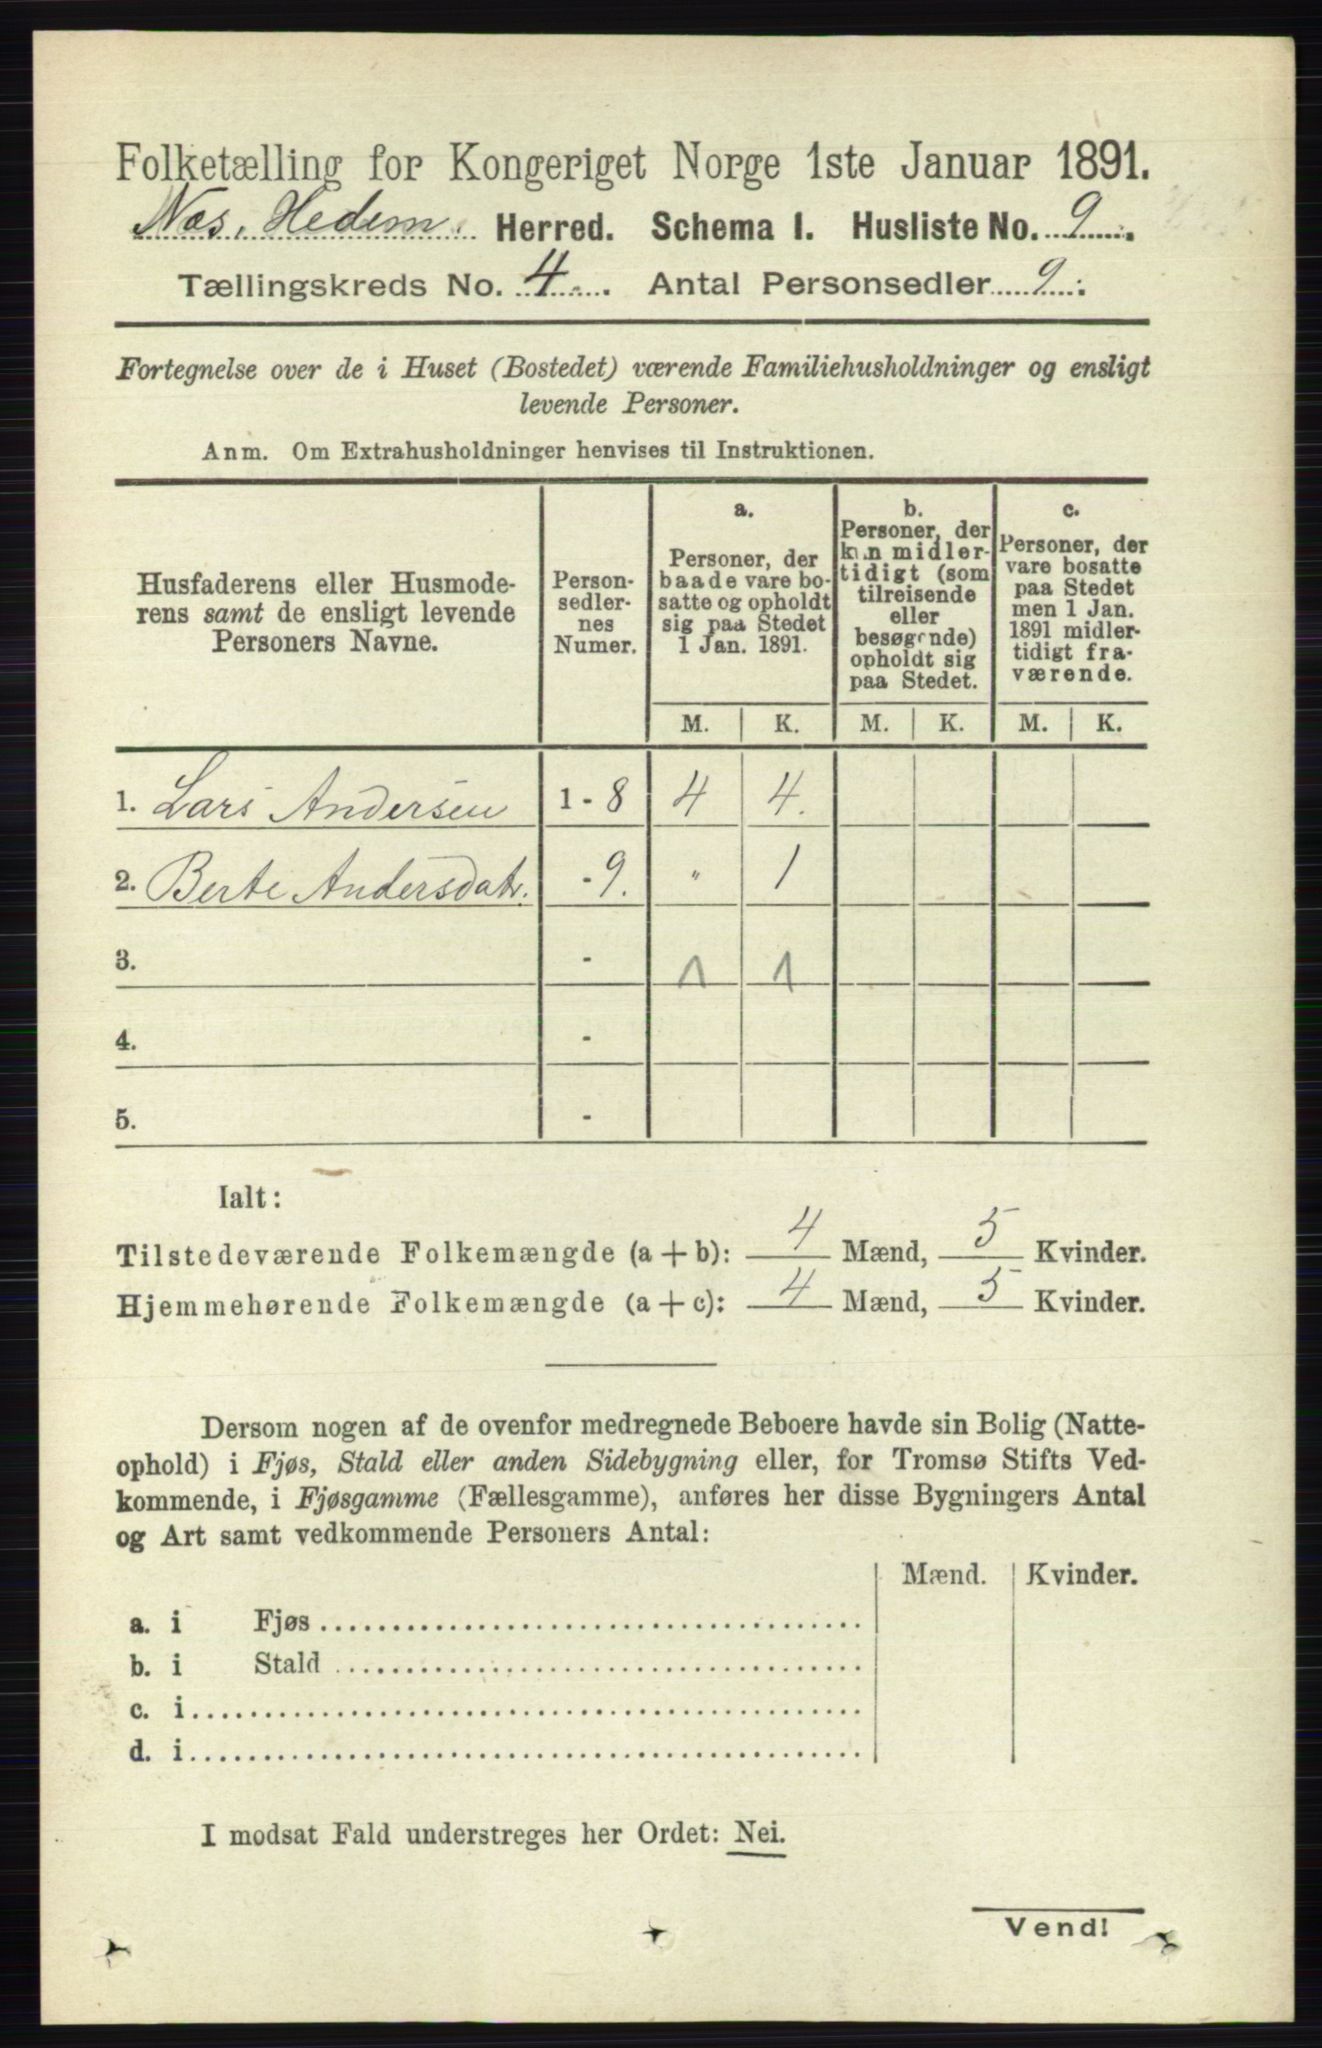 Folketælling for Kongeriget Norge 1ste Januar 1891.
Næs, Hedem. Herred. Schema I. Husliste No. 9.
Tællingskreds No. 4. Antal Personsedler 9.
Fortegnelse over de i Huset (Bostedet) værende Familiehusholdninger og ensligt
levende Personer.
Anm. Om Extrahusholdninger henvises til Instruktionen.
Husfaderens eller Husmode-
rens samt de ensligt levende
Personers Navne.
Person-
sedler-
nes
Numer.
a.
Personer, der
baade vare bo-
satte og opholdt
sig paa Stedet
1 Jan. 1891.
b.
Personer, der
kun midler-
tidigt (som
tilreisende
eller
besøgende)
opholdt sig
paa Stedet.
c.
Personer, der
vare bosatte
paa Stedet
men 1 Jan.
1891 midler-
tidigt fra-
værende.
M. K. M. K. M. K.
1. Lars Andersen 1 - 8 4 4.
2. Berte Andersdatr. - 9. " 1
3. - 1 1
4. -
5. -
Ialt:
Tilstedeværende Folkemængde (a + b): 4 Mænd, 5 Kvinder.
Hjemmehørende Folkemængde (a + c): 4 Mænd, 5 Kvinder.
Dersom nogen af de ovenfor medregnede Beboere havde sin Bolig (Natte-
ophold) i Fjøs, Stald eller anden Sidebygning eller, for Tromsø Stifts Ved-
kommende, i Fjøsgamme (Fællesgamme), anføres her disse Bygningers Antal
og Art samt vedkommende Personers Antal:
Mænd. Kvinder.
a. i Fjøs
b. i Stald
c. i
d. i
I modsat Fald understreges her Ordet: Nei.
Vend!